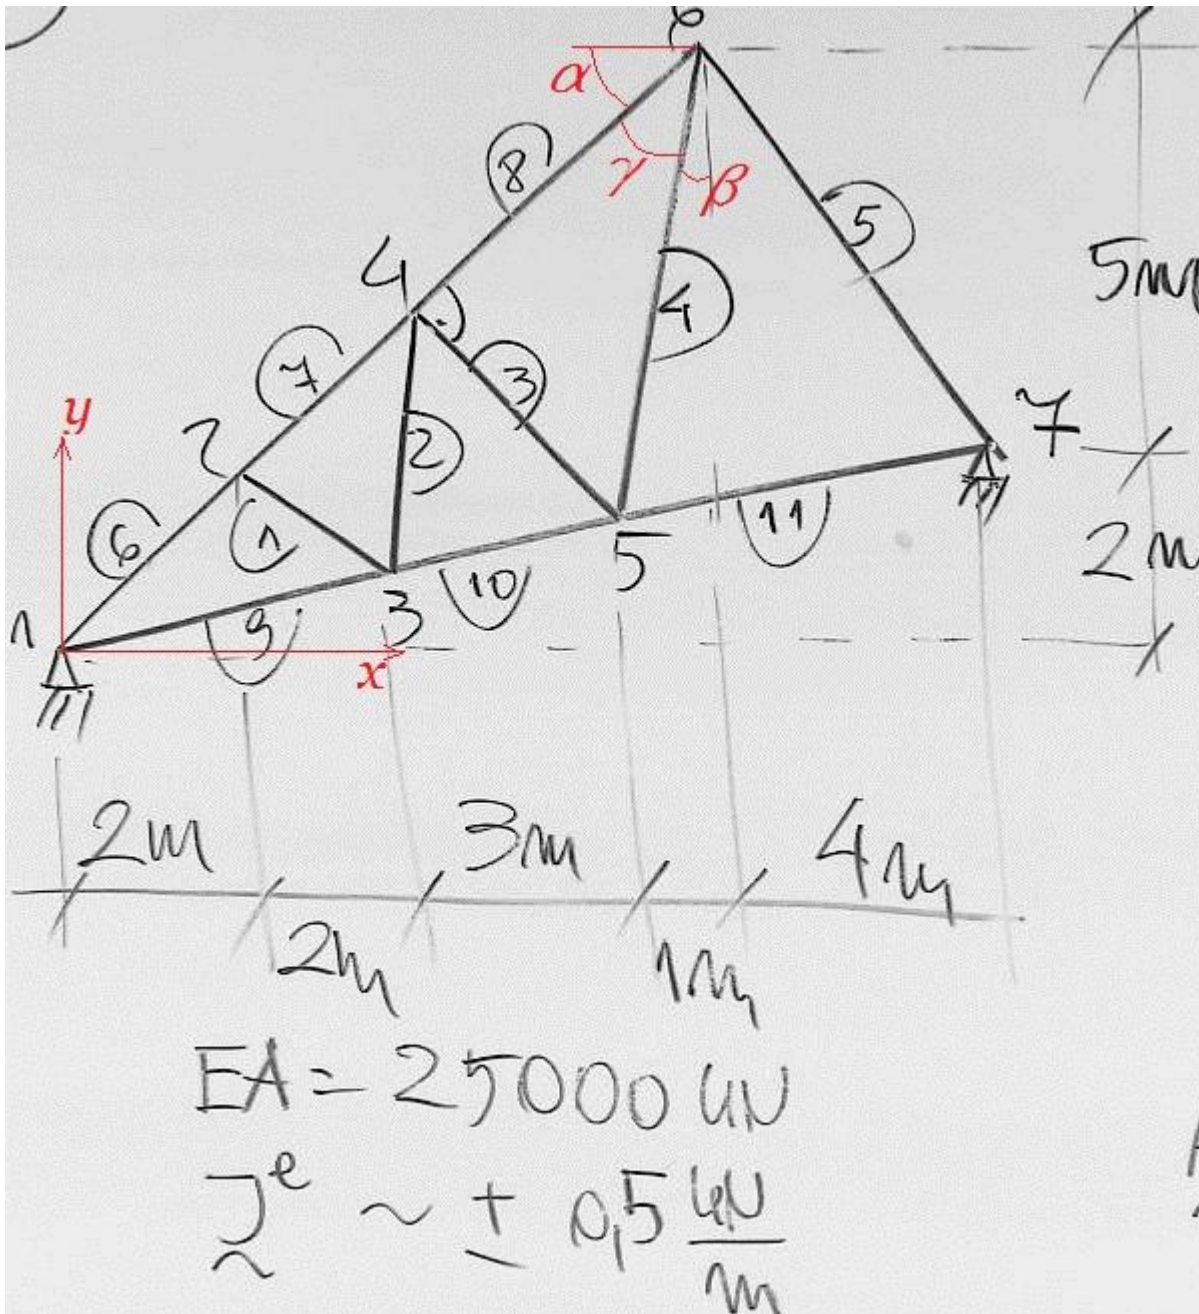 6
α
8
γ
β
5
4
5m
4
7
3
y
2
7
2
6
1
5
11
2m
10
1
9
3
x
2m
3m
4m
2m
1m
EA = 25000 kN
J^e ~ ± 0,5 kN/m